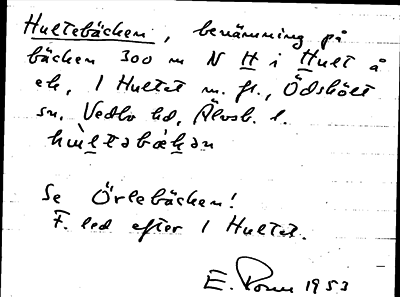 Hultebäcken, benämning på
bäcken 300 m N H i Hult å
ek, 1 Hultet m. fl., Ödskölt
sn, Vedbo hd, Älvsb. l.
Se Örlebäcken!
F. led efter 1 Hultet.
E. 1953